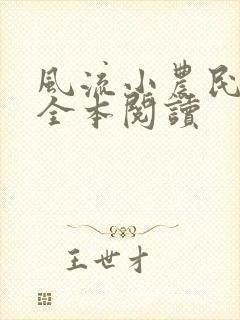 風流小農民
全本閱讀
王世才